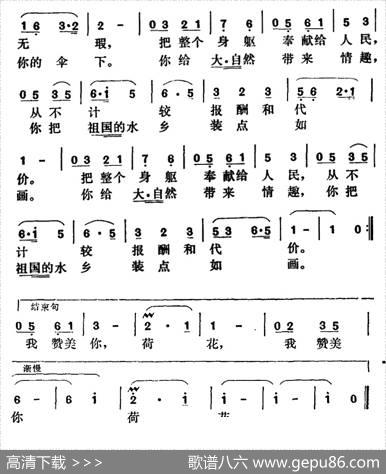 1 6 3·2 | 1 - | 0 3 2 1 | 7 6 | 0 5 6 1 | 5 3 |
无 瑕， 把整个 身 躯 奉献给 人民，
你的伞 下。 你给 大·自然 带来 情趣，
0 5 3 5 | 6·i 5 | 6·5 | 3 2 3 | 5 6 2·1 |
从不 计 较 报酬和代
你把 祖国的水 乡 装点 如
1 - | 0 3 2 1 | 7 6 | 0 5 6 1 | 5 3 | 0 5 3 5 |
价。 把整个 身 躯 奉献给 人民， 从不
画。 你给 大·自然 带来 情趣， 你把
6·i 5 | 6·5 | 3 2 3 | 5 3 6·5 | 1 - | 1 0 :‖
计 较 报酬和代 价。
祖国的水 乡 装点 如 画。
结束句
0 5 6 1 | 3 - | 2 · i | i - | 0 2 3 5 |
我 赞美 你， 荷 花， 我 赞美
渐慢
6 - | 6 i | 2 · i | i - | i 0 ‖
你 荷
高清下载 >>> 歌谱八六 www.gepu86.com